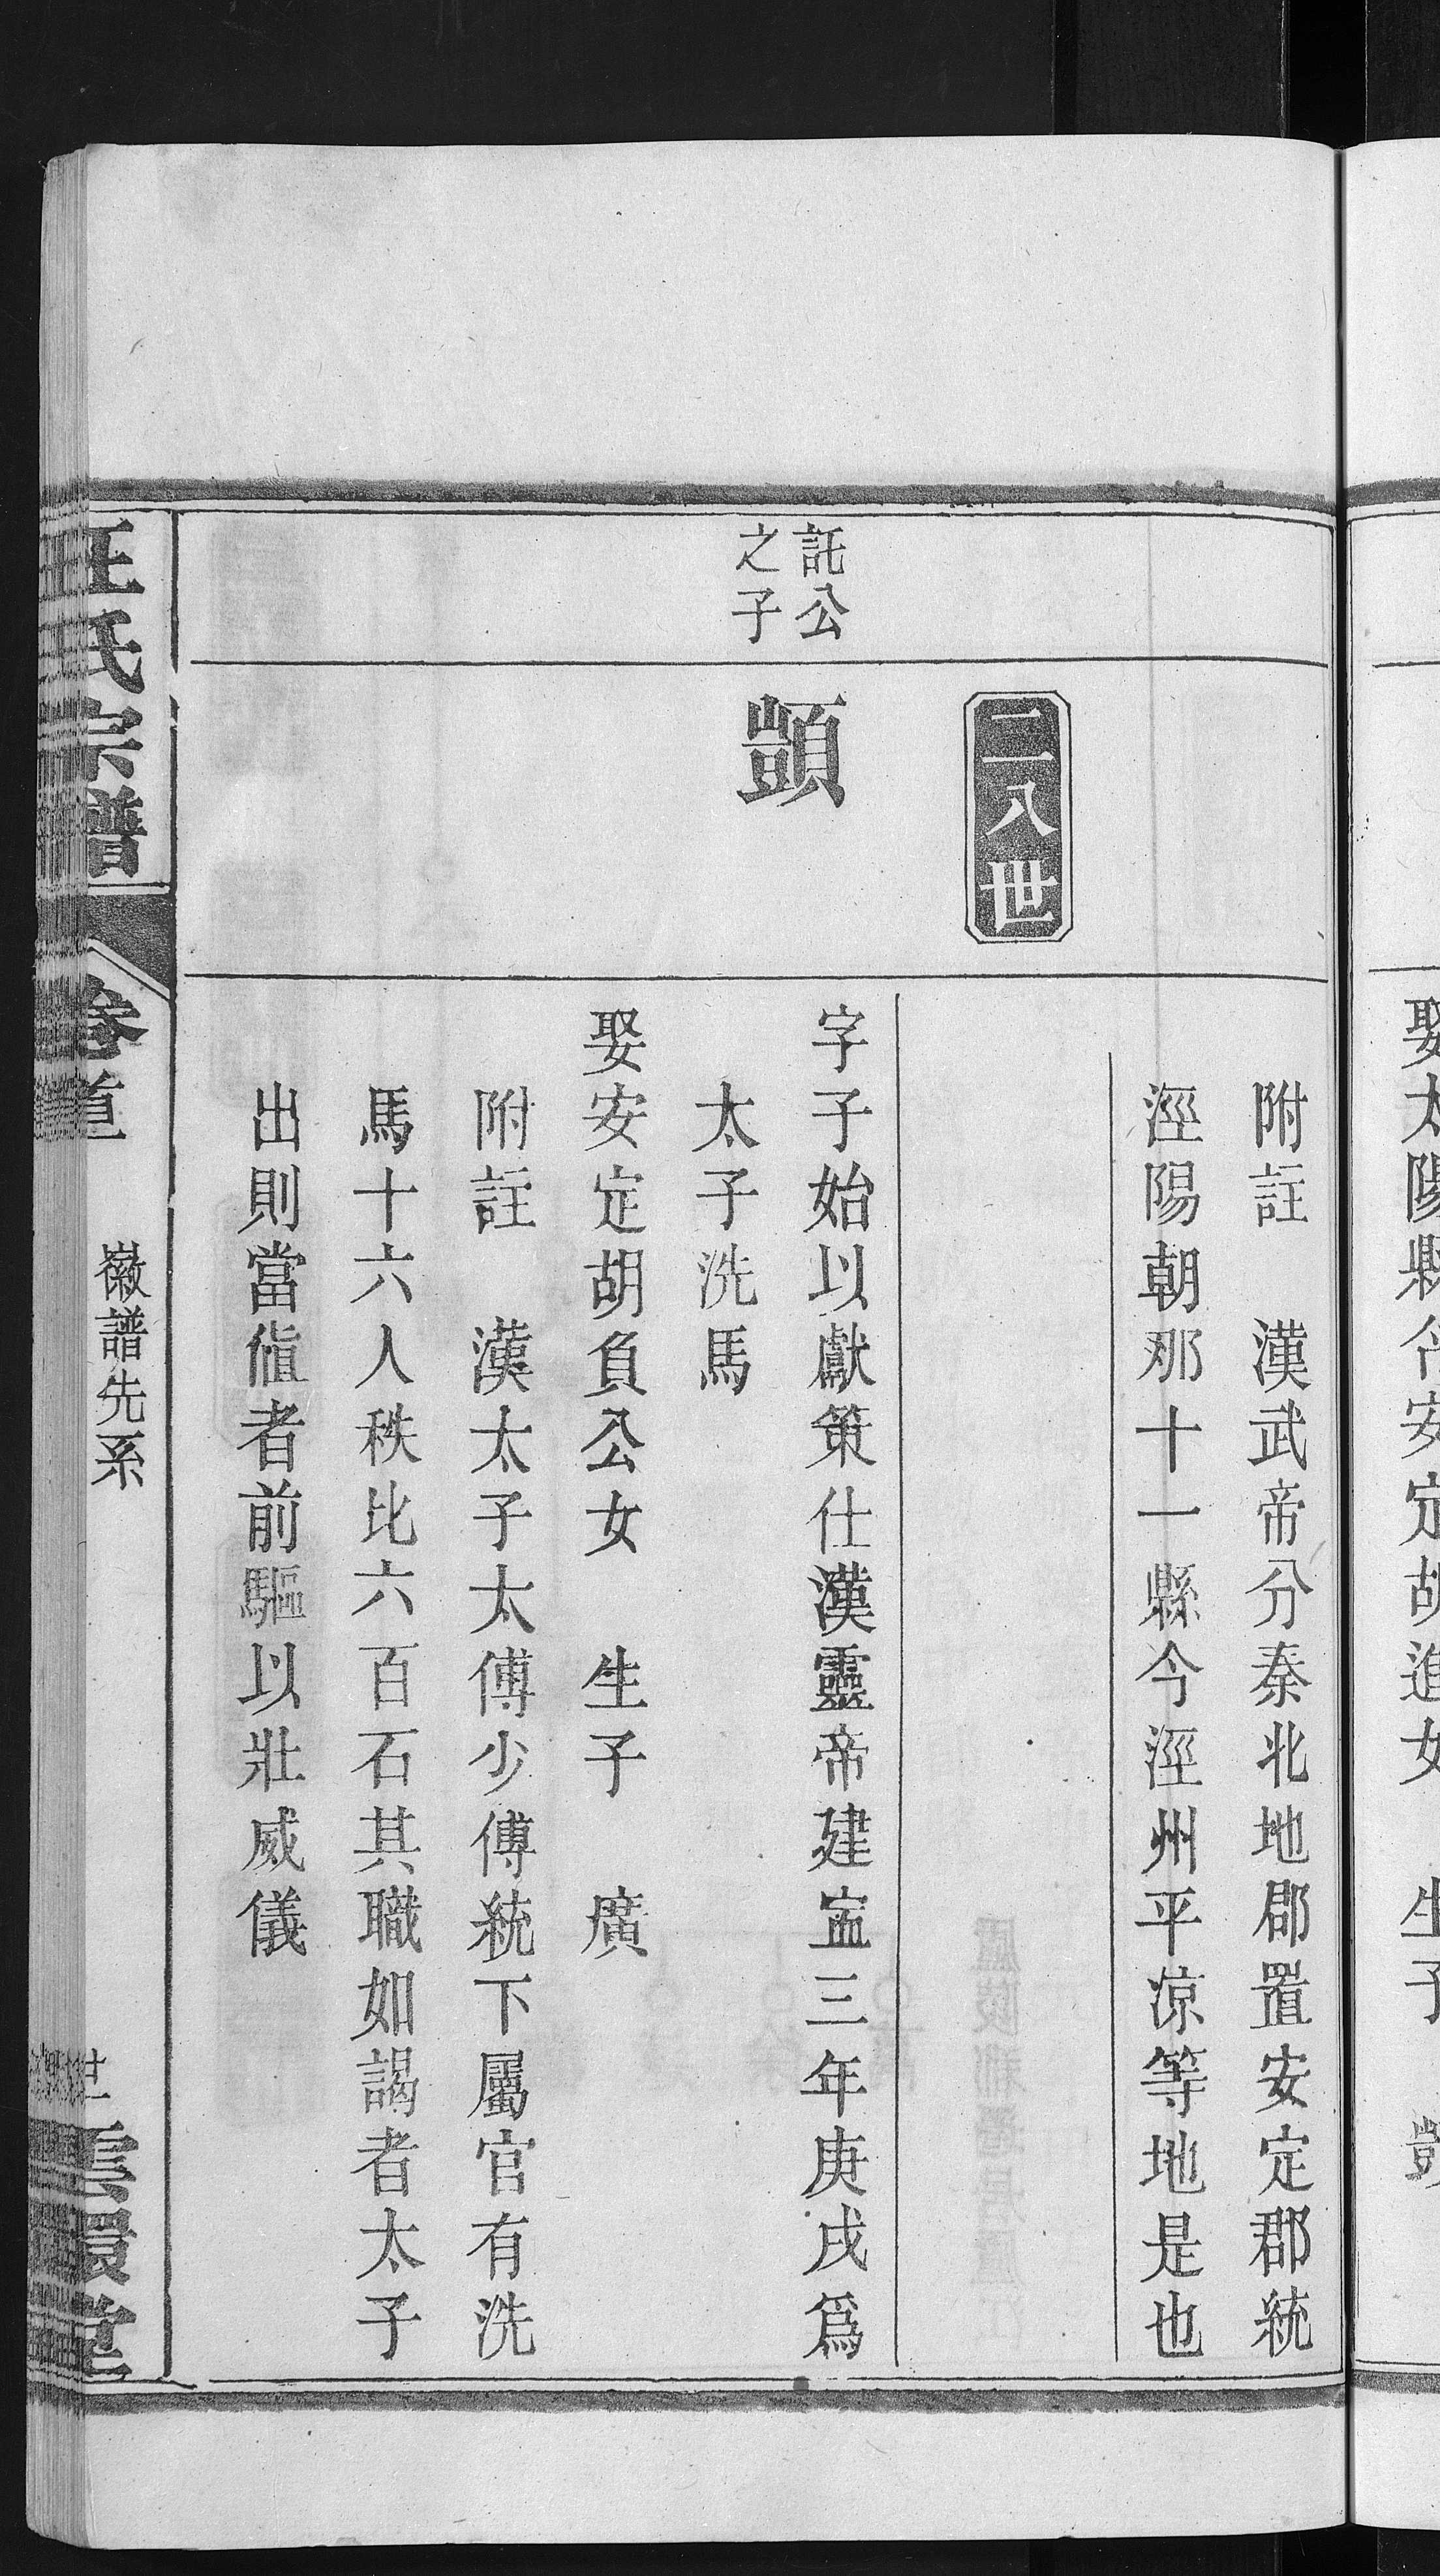 娶太陽縣令安定胡進女 生子
附註 漢武帝分秦北地郡置安定郡統
涇陽朝那十一縣今涇州平凉等地是也
二八世
託公
之子
顗
字子始以獻策仕漢靈帝建寍三年庚戌爲
太子洗馬
娶安定胡負公女 生子 廣
附註 漢太子太傅少傅統下屬官有洗
馬十六人秩比六百石其職如謁者太子
出則當値者前驅以壯威儀
汪氏宗譜 卷首 徽譜先系 雲環堂